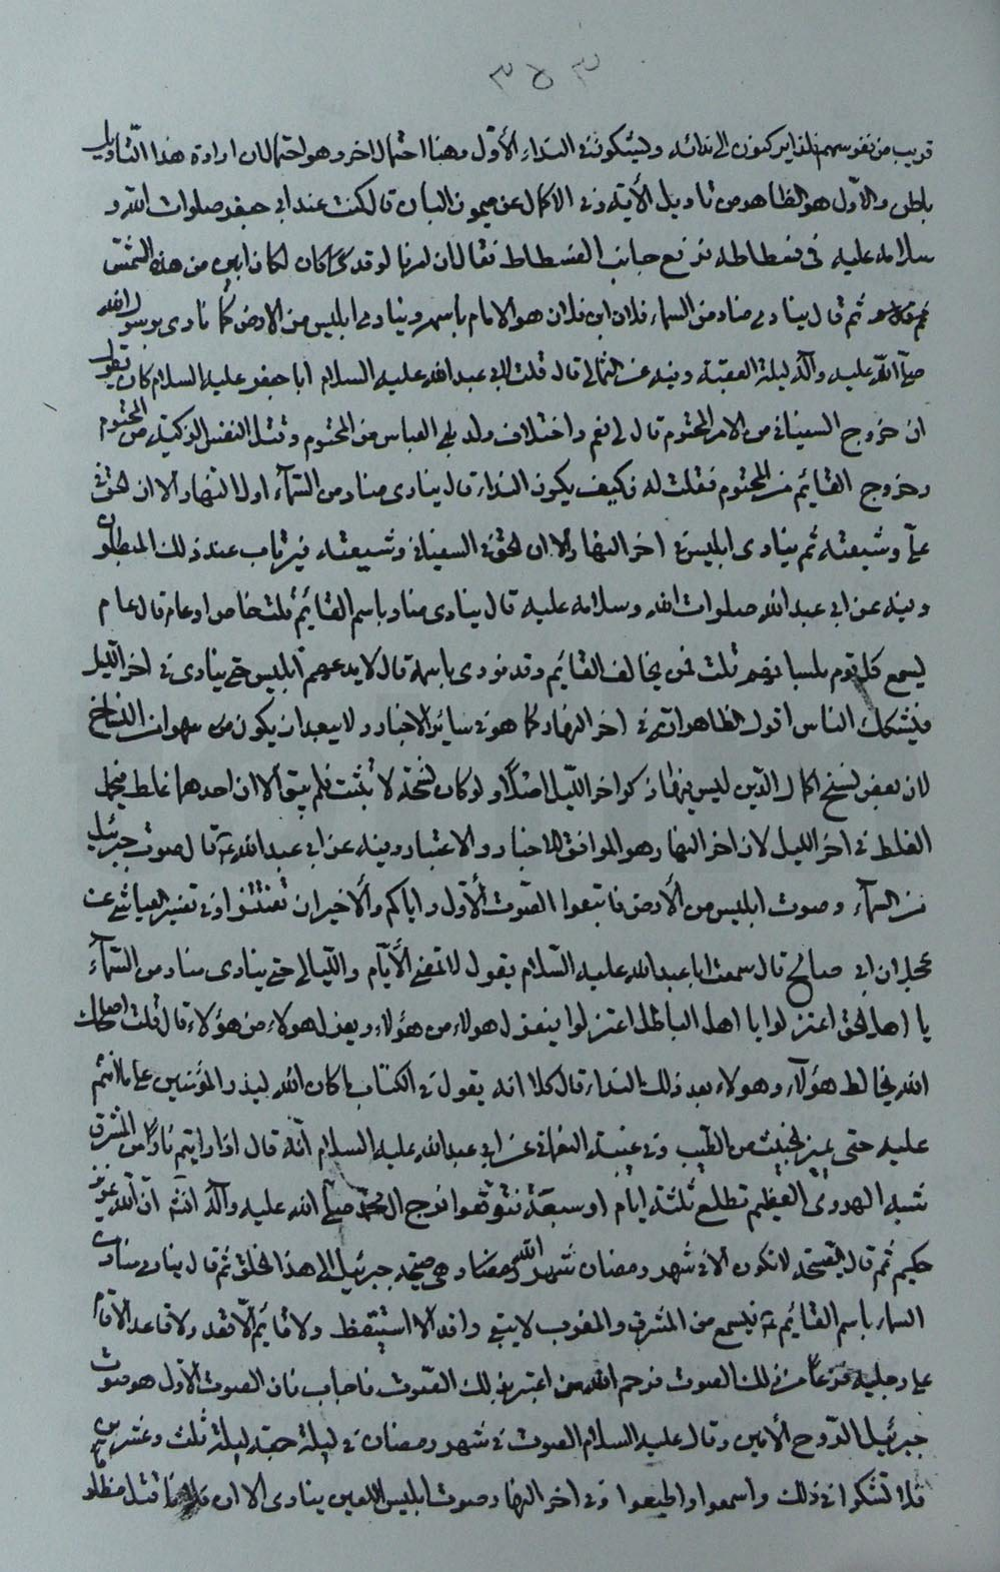 ٣٥٣
قريب من نفوسهم فلذا يركنون الى ندائه ويشكون في النداء الأول وهنا احتمال اخر وهو احتمال ان ارادة هذا التاويل
باطن والاول هو الظاهر من تاويل الآية وفي الاكمال عن ميمون البان قال كنت عند ابي جعفر صلوات الله و
سلامه عليه في فسطاطه فرفع جانب الفسطاط فقال ان امرنا لو قد كان لكان ابين من هذه الشمس
ثم قال ينادي مناد من السماء فلان ابن فلان هو الامام باسمه وينادي ابليس من الارض كما نادى برسول الله
صلى الله عليه وآله ليلة العقبة وفيه عن الثمالي قال قلت لابي عبد الله عليه السلام ان ابا جعفر عليه السلام كان يقول
ان خروج السفياني من الامر المحتوم قال لي نعم واختلاف ولد العباس من المحتوم وقتل النفس الزكية من المحتوم
وخروج القائم من المحتوم فقلت له فكيف يكون النداء قال ينادى مناد من السمآء اول النهار الا ان الحق في
علي وشيعته ثم ينادى ابليس في اخر النهار الا ان الحق في السفياني وشيعته فيرتاب عند ذلك المبطلون
وفيه عن ابي عبد الله صلوات الله وسلامه عليه قال ينادى مناد باسم القائم قلت خاص او عام قال عام
يسمع كل قوم بلسانهم قلت فمن يخالف القائم وقد نودى باسمه قال لا يدعهم ابليس حتى ينادى في اخر الليل
فيشكك الناس اقول الظاهر انه في اخر النهار كما هو في ساير الاخبار ولا يبعد ان يكون من سهو النساخ
لان بعض نسخ اكمال الدين ليس فيها ذكر اخر الليل اصلا ولو كان نسخة لا ثبتت فلم يبق الا ان احدهما غلط فيحمل
الغلط في اخر الليل لان اخر النهار هو الموافق للاخبار والاعتبار وفيه عن ابي عبد الله ع قال صوت جبرئيل
من السمآء وصوت ابليس من الأرض فاتبعوا الصوت الأول واياكم والأخير ان تفتتنوا وفي تفسير العياشي عن
عجلان ابي صالح قال سمعت ابا عبد الله عليه السلام يقول لا تمضي الأيام والليالي حتى ينادى مناد من السمآء
يا اهل الحق اعتزلوا يا اهل الباطل اعتزلوا فيعزل هولاء من هؤلاء ويعزل هولاء من هؤلاء قال قلت اصلحك
الله يخالط هؤلآء وهولاء بعد ذلك النداء قال كلا انه يقول في الكتاب ما كان الله ليذر المؤمنين على ما انتم
عليه حتى يميز الخبيث من الطيب وفي غيبة النعماني عن ابي عبد الله عليه السلام انه قال اذا رايتم نارا من المشرق
شبه الهردى العظيم تطلع ثلثة ايام او سبعة فتوقعوا فرج ال محمد صلى الله عليه وآله انش ان الله عزيز
حكيم ثم قال الصيحة لا تكون الا في شهر رمضان شهر الله وهى صيحة جبرئيل الى هذا الخلق ثم قال ينادي مناد من
السماء باسم القائم ع فيسمع من المشرق والمغرب لا يبقى راقد الا استيقظ ولا قايم الا قعد ولا قاعد الا قام
على رجليه فزعا من ذلك الصوت فرحم الله من اعتبر بذلك الصوت فاجاب فان الصوت الاول هو صوت
جبرئيل الروح الأمين وقال عليه السلام الصوت في شهر رمضان في ليلة جمعة ليلة ثلث وعشرين
فلا تشكوا في ذلك واسمعوا واطيعوا وفي اخر النهار صوت ابليس اللعين ينادى الا ان فلانا قتل مظلوما